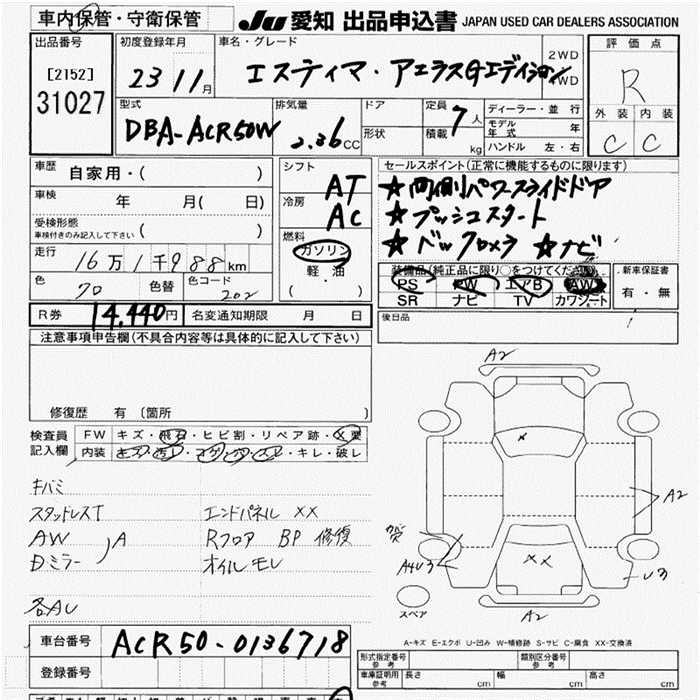 車内保管・守衛保管
JU 愛知 出品申込書 JAPAN USED CAR DEALERS ASSOCIATION
出品番号
[2152]
31027
初度登録年月
23 11月
車名・グレード
エスティマ・アエラスGエディション
2WD
4WD
評価点
R
外装 内装
C C
型式
DBA-ACR50W
排気量
2.36cc
ドア
形状
定員
7人
積載 kg
ディーラー・並行
モデル年式 年
ハンドル 左・右
車歴 自家用・( )
車検 年 月( 日)
受検形態
車検付きのみ記入して下さい ( )
走行 16万1千988km
色 クロ 色替 色コード 202
シフト AT
冷房 AC
燃料
ガソリン
軽油
( ・ )
セールスポイント(正常に機能するものに限ります)
★両側パワースライドドア
★プッシュスタート
★バックカメラ ★ナビ
装備品(純正品に限り○をつけてください)
PS PW エアB AW
SR ナビ TV カワシート
新車保証書
有・無
R券 14,440円 名変通知期限 月 日
後日品
注意事項申告欄(不具合内容等は具体的に記入して下さい)
修復歴 有 (箇所 )
検査員記入欄
FW キズ・飛石・ヒビ割・リペア跡・X要
内装 キズ・汚レ・コゲ・穴・スレ・キレ・破レ
キバミ
スタッドレスT エンドパネル XX
AW Rフロア BP 修復
Dミラー )A オイルモレ
各AU
A2
A2
A4U3
U3
スペア
A2
A-キズ E-エクボ U-凹み W-補修跡 S-サビ C-腐食 XX-交換済
車台番号 ACR50-0136718
登録番号
型式指定番号 参考
類別区分番号 参考
車庫証明用 参考 長さ cm 幅 cm 高さ cm